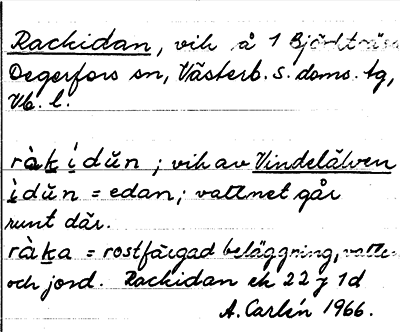 Rackidan, vik å 1 Bjärkträsk
Degerfors sn, Västerb. s. doms. tg,
Vb. l.
ràkídŭn; vik av Vindelälven
ìdŭn = edan; vattnet går
runt där.
ràka = rostfärgad beläggning, vatten
och jord. Rackidan ek 22 J 1d
A. Carlén 1966.